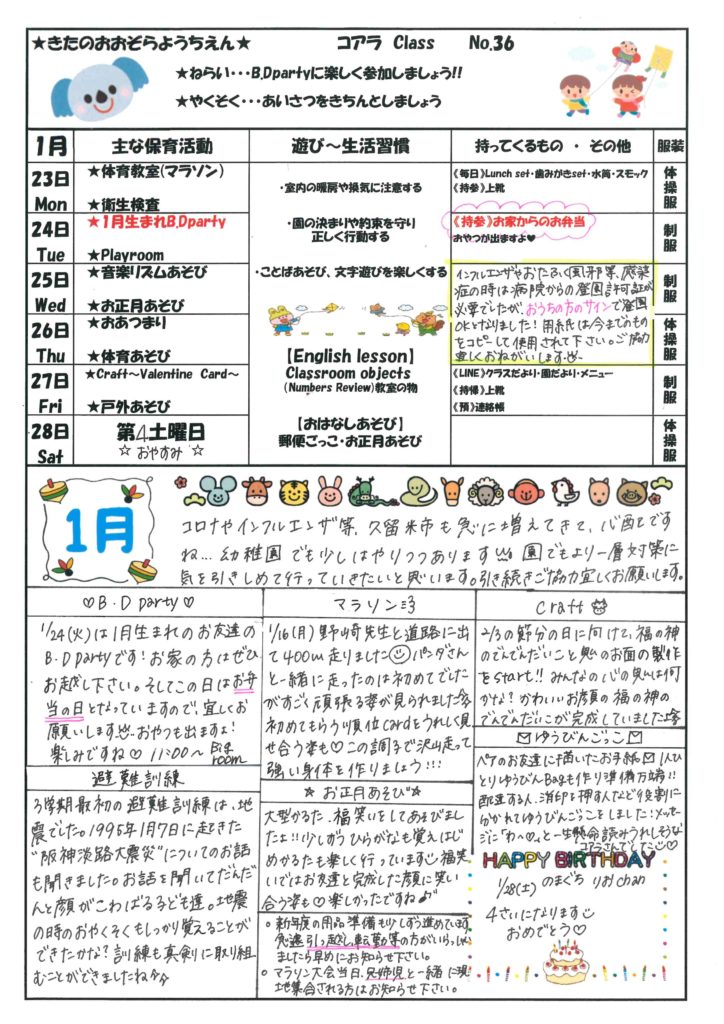 ★きたのおおぞらようちえん★ コアラ Class No.36
★ねらい・・・B.Dpartyに楽しく参加しましょう!!
★やくそく・・・あいさつをきちんとしましょう
1月 主な保育活動 遊び～生活習慣 持ってくるもの ・ その他 服装
23日 Mon
★体育教室(マラソン)
★衛生検査
《毎日》Lunch set・歯みがきset・水筒・スモック
《持参》上靴
体操服
24日 Tue
★1月生まれB.Dparty
★Playroom
《持参》お家からのお弁当
おやつが出ますよ♥
制服
25日 Wed
★音楽リズムあそび
★お正月あそび
制服
26日 Thu
★おあつまり
★体育あそび
体操服
27日 Fri
★Craft～Valentine Card～
★戸外あそび
《LINE》クラスだより・園だより・メニュー
《持帰》上靴
《預》連絡帳
制服
28日 Sat
第4土曜日
☆ おやすみ ☆
体操服
・室内の暖房や換気に注意する
・園の決まりや約束を守り
正しく行動する
・ことばあそび、文字遊びを楽しくする
【English lesson】
Classroom objects
(Numbers Review)教室の物
【おはなしあそび】
郵便ごっこ・お正月あそび
インフルエンザやおたふく風邪等、感染
症の時は病院からの登園許可証が
必要でしたが、おうちの方のサインで登園
OKとなりました!用紙は今までのもの
をコピーして使用されて下さい。ご協力
宜しくおねがいします
1月
コロナやインフルエンザ等、久留米市も急に増えてきて、心配です
ね…幼稚園でも少しはやりつつあります 園でもより一層対策に
気を引きしめて行っていきたいと思います。引き続きご協力宜しくお願いします。
♡B.D party♡
1/24(火)は1月生まれのお友達の
B.D partyです!お家の方はぜひ
お越し下さい。そしてこの日はお弁
当の日となっていますので、宜しくお
願いします。おやつも出ますよ!
楽しみですね♡ 11:00～ Big room
避難訓練
3学期最初の避難訓練は、地
震でした。1995年1月7日に起きた
“阪神淡路大震災”についてのお話
も聞きました。お話を聞いてだんだ
んと顔がこわばる子ども達。地震
の時のおやくそくもしっかり覚えることが
できたかな?訓練も真剣に取り組
むことができましたね
マラソン
1/16(月)野崎先生と道路に出
て400m走りました パンダさん
と一緒に走ったのは初めてでした
がすごく頑張る姿が見られました
初めてもらう順位cardをうれしく見
せ合う姿も♡この調子で沢山走って
強い身体を作りましょう!!!
☆お正月あそび☆
大型かるた、福笑いをしてあそびまし
たよ!!少しずつひらがなも覚えはじ
めかるたも楽しく行っています 福笑
いではお友達と完成した顔に笑い
合う姿も♡楽しかったですね♪
○新年度の用品準備も少しずつ進めています。
急遽引っ越し、転勤等の方がいらっしゃい
ましたら早めにお知らせ下さい。
○マラソン大会当日、兄姉児と一緒に現
地集合される方はお知らせ下さい。
craft
2/3の節分の日に向けて、福の神
のでんでんだいこと鬼のお面の製作
をstart!!みんなの心の鬼は何
かな?かわいいお顔の福の神の
でんでんだいこが完成していましたよ
ゆうびんごっこ
ペアのお友達に描いたお手紙 1人ひ
とりゆうびんBagも作り準備万端!!
配達する人、消印を押す人など役割に
分かれてゆうびんごっこをしました!メッセー
ジに「わ～♡」と一生懸命読みうれしそうな
コアラさんでした♡
HAPPY BIRTHDAY
1/28(土) のまぐち りお chan
4さいになります
おめでとう♡